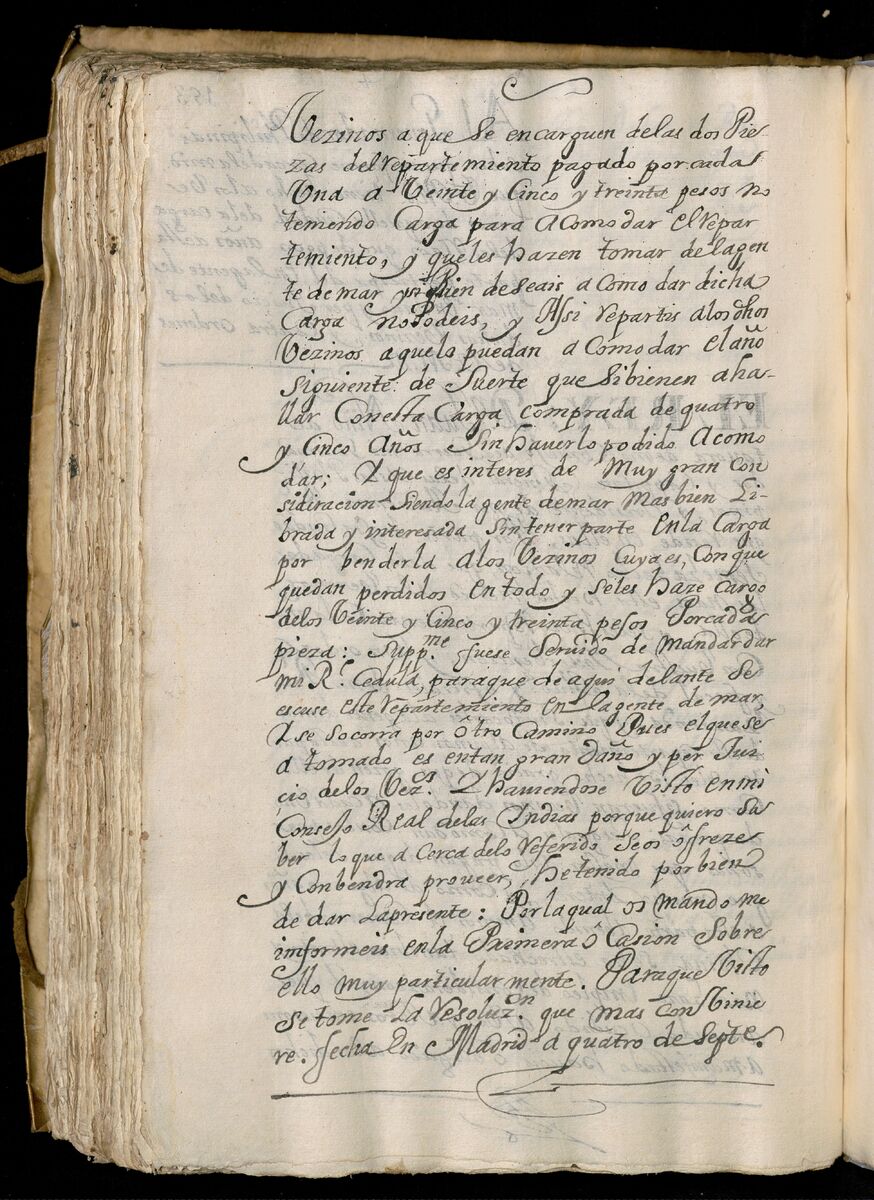 Vezinos a que se encarguen delas dos Pie-
zas del repartemiento pagado por cada
Una a Veinte y Cinco y treinta pesos no
teniendo Carga para acomodar el repar
temiento, y queles hazen tomar delagen
te de mar y siquien deseais acomodar dicha
Carga no Podeis, y Assi repartis alos dhos
Vezinos aquelo puedan acomodar el año
siguiente: de Suerte que Sibienen aha-
llar Conesta Carga comprada de quatro
y Cinco Años Sin haverlo podido Acomo
dar; Y que es interes de Muy gran con
sidiracion Siendo la gente demar Mas bien Li-
brada y interesada Sin tener parte Enla Carga
por benderla alos Vezinos Cuya es, Con que
quedan perdidos en todo y seles haze cargo
delos Veinte y Cinco y treinta pesos Porcada
pieza: Supp.me fuese Servido de mandar dar
mi R.l Cedula, paraque de aqui delante Se
escuse este repartemiento en lagente de mar,
Y se socorra por ôtro Camino Pues elquese
a tomado es entan gran Daño y per Jui
cio de los Vez.os Y haviendose Visto en mi
Consejo Real delas Indias porque quiero Sa
ber lo que a Cerca delo referido se os ôfreze
y Conbendra proveer, he tenido por bien
de dar Lapresente: Porlaqual os mando me
informeis enla Primera ôCasion Sobre
ello muy particularmente. Paraque Visto
Se tome La resoluz.on que mas con Vinie
re. fecha En Madrid a quatro de Septe.